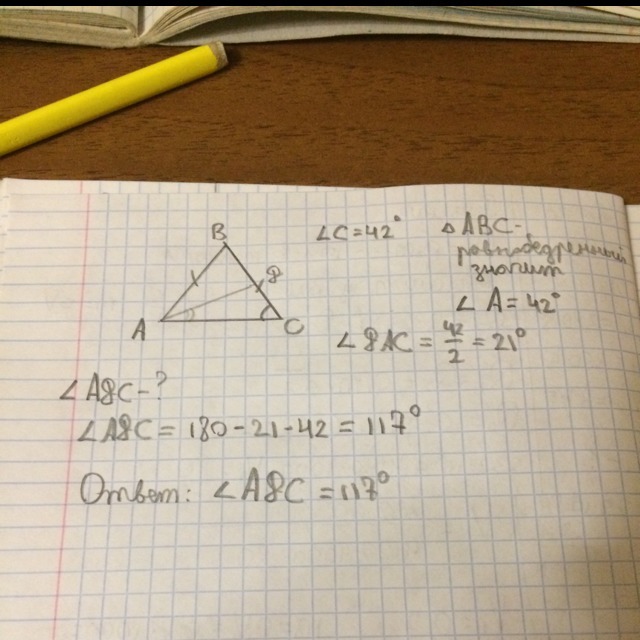 B
∠C=42°
△ABC-
равнобедренный
значит
∠A=42°
A
C
∠8AC = 42/2 = 21°
∠A8C-?
∠A8C = 180-21-42 = 117°
Ответ: ∠A8C = 117°